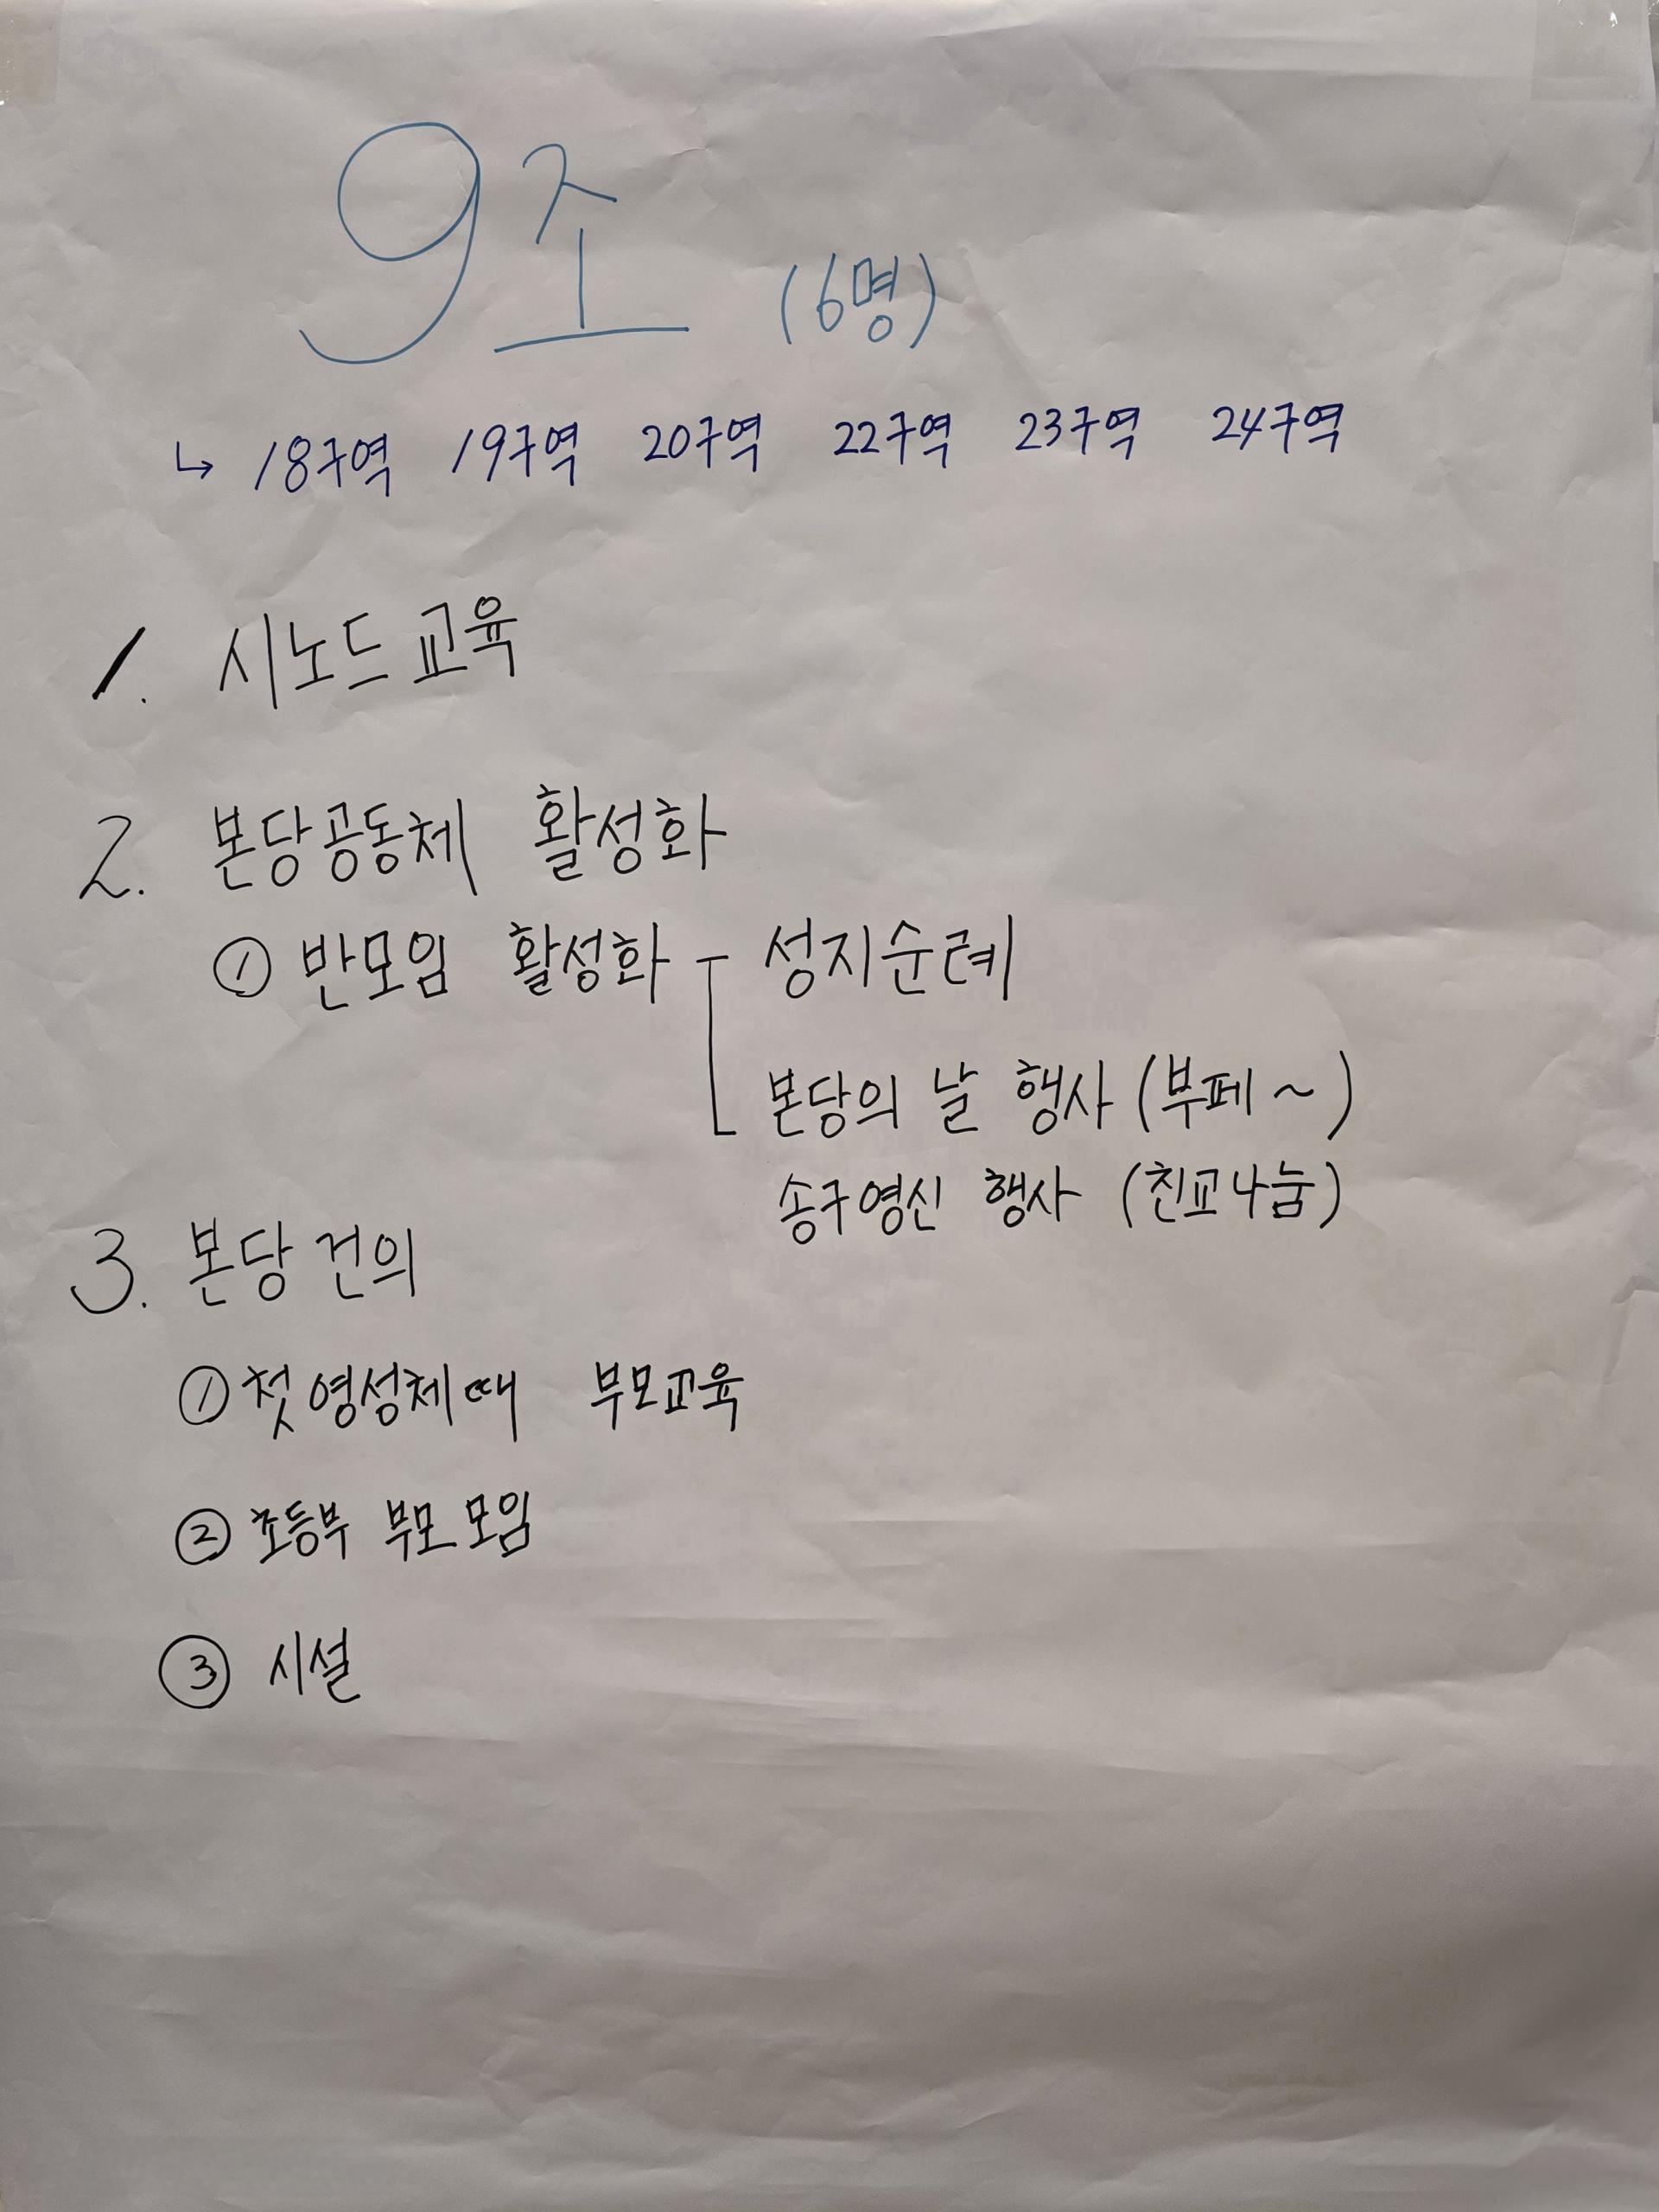 9조 (6명)
↳ 18구역 19구역 20구역 22구역 23구역 24구역
1. 시노드 교육
2. 본당공동체 활성화
① 반모임 활성화 - 성지순례
본당의 날 행사 (부페~)
송구영신 행사 (친교나눔)
3. 본당 건의
① 첫영성체때 부모교육
② 초등부 부모모임
③ 시설